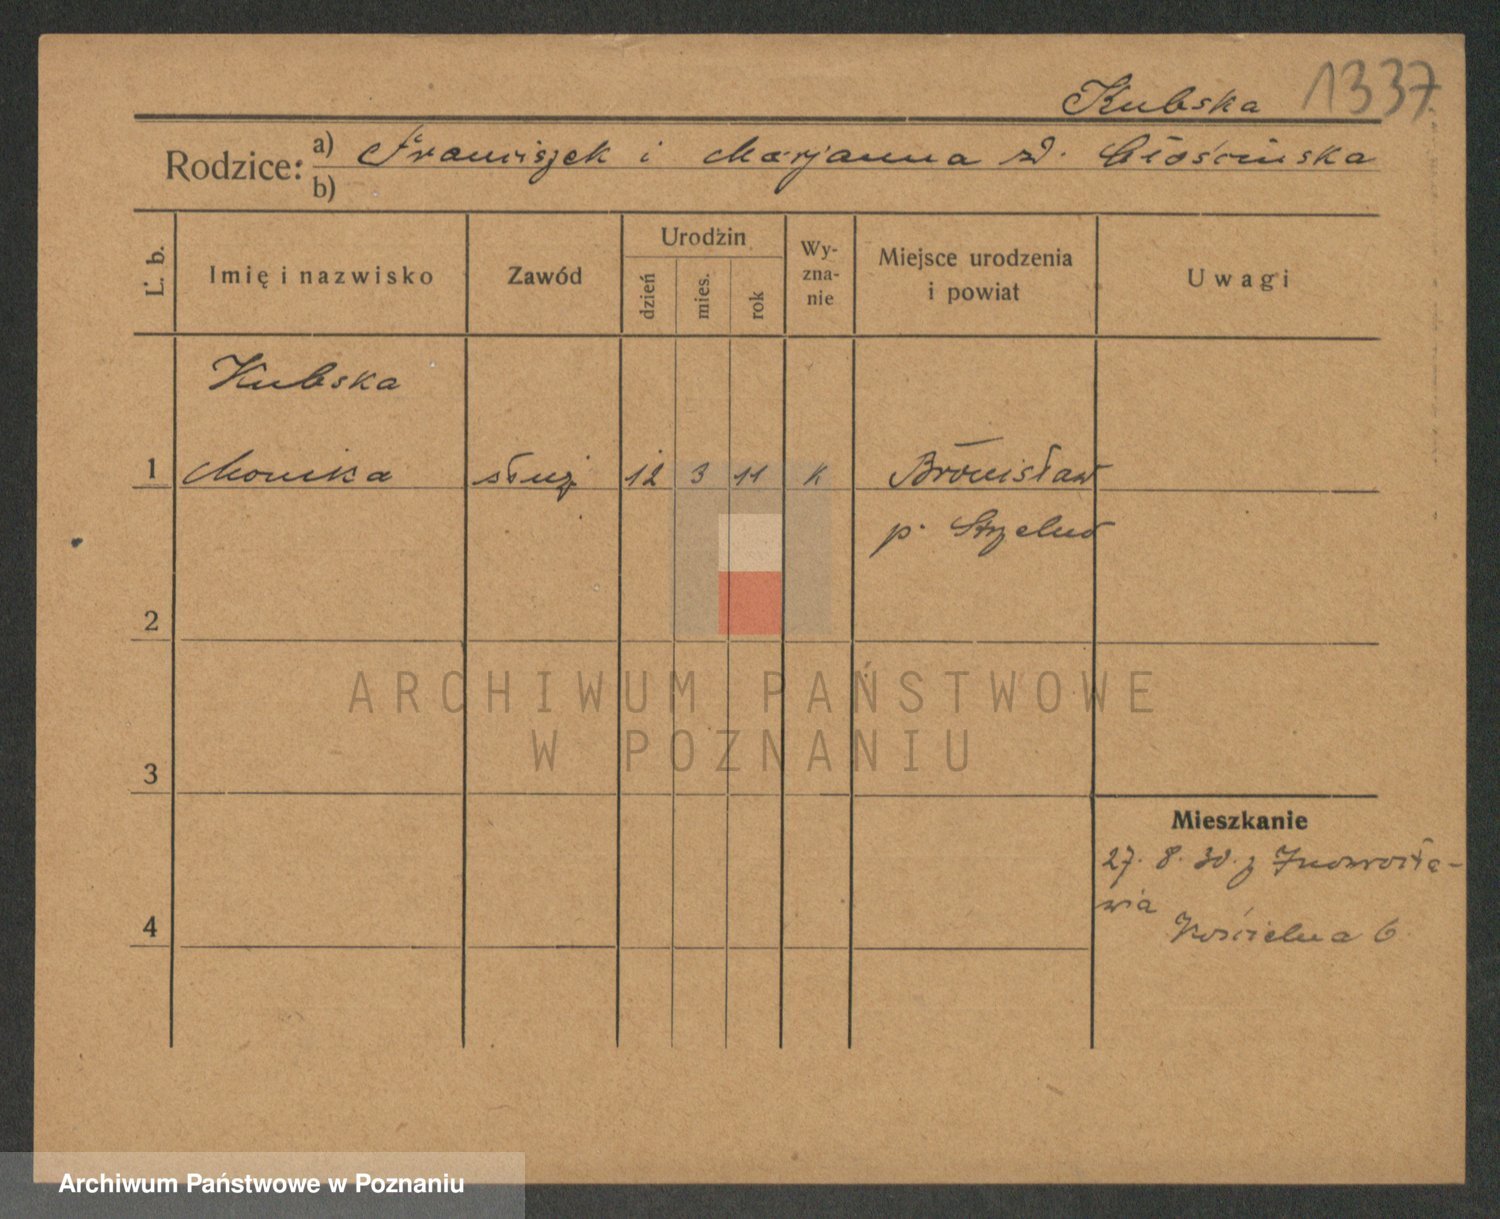 Kubska 1337
Rodzice: a) Franciszek i Marjanna zd.
b)
L. b.
Imię i nazwisko
Zawód
Urodzin
dzień
mies.
rok
Wy-
zna-
nie
Miejsce urodzenia
i powiat
Uwagi
Kubska
1 Monika służ. 12 3 11 k Bronisław
p. Strzelno
2
3
4
ARCHIWUM PAŃSTWOWE
W POZNANIU
Mieszkanie
27. 8. 30. z Inowrocła-
wia
Kościelna 6
Archiwum Państwowe w Poznaniu